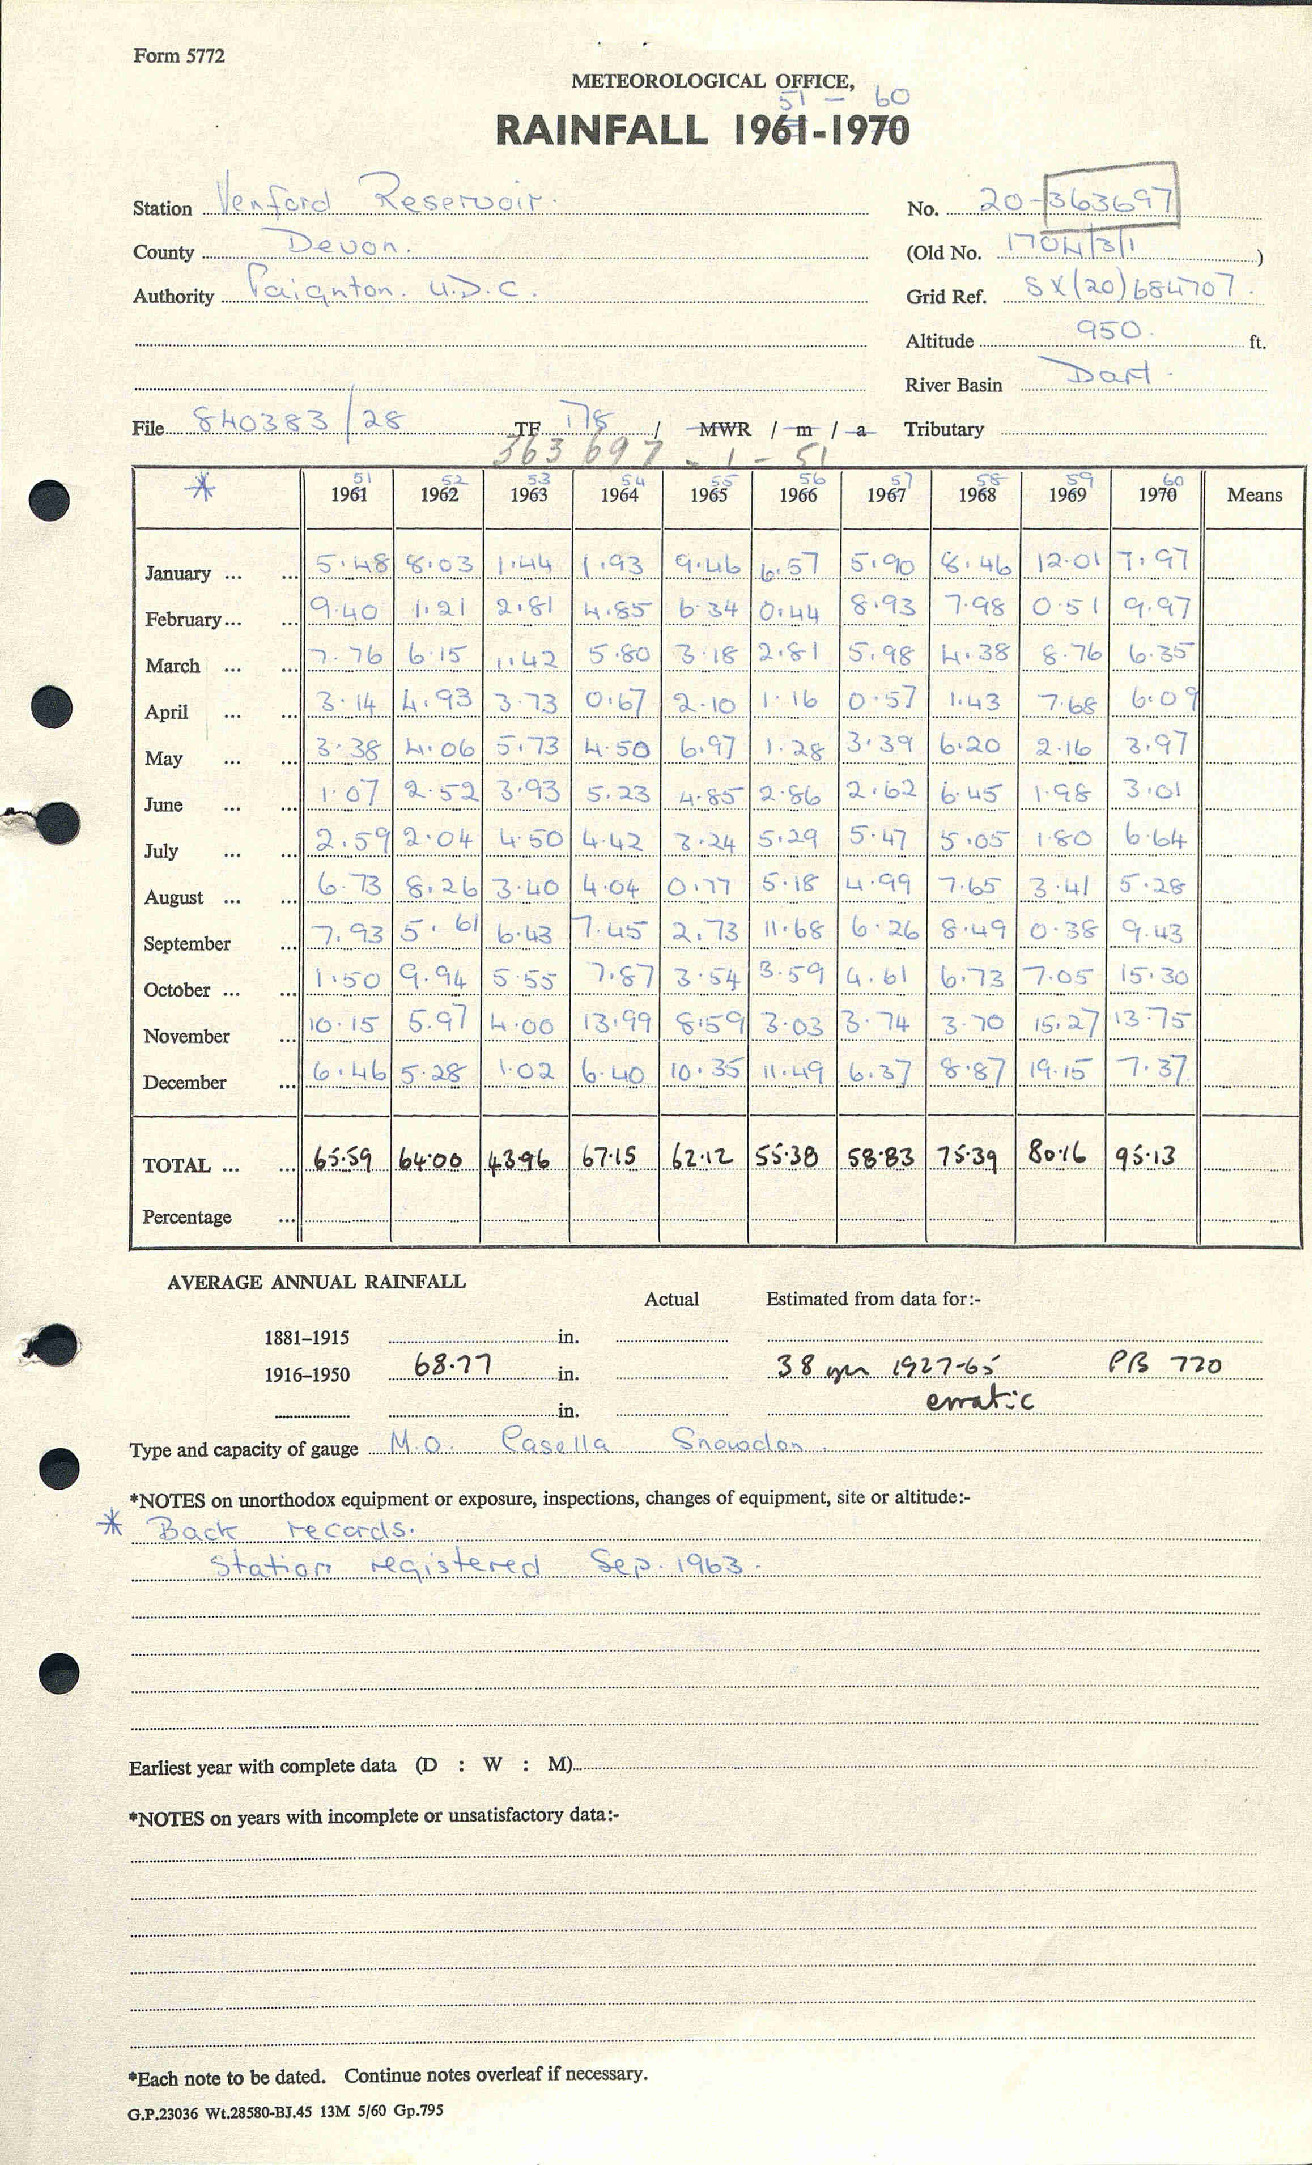 Form 5772
METEOROLOGICAL OFFICE,
51 – 60
RAINFALL 1961-1970
Station Venford Reservoir. No. 20-363697
County Devon. (Old No. 1704/3/1 )
Authority Paignton. U.D.C. Grid Ref. SX(20)684707.
Altitude 950. ft.
River Basin Dart.
File 840383/28 TF 178 / MWR / m / a Tributary
363 697 - 1 - 51
* 51 52 53 54 55 56 57 58 59 60
1961 1962 1963 1964 1965 1966 1967 1968 1969 1970 Means
January ... ... 5.48 8.03 1.44 1.93 9.46 6.57 5.90 8.46 12.01 7.97
February... ... 9.40 1.21 2.81 4.85 6.34 0.44 8.93 7.98 0.51 9.97
March ... ... 7.76 6.15 1.42 5.80 3.18 2.81 5.98 4.38 8.76 6.35
April ... ... 3.14 4.93 3.73 0.67 2.10 1.16 0.57 1.43 7.68 6.09
May ... ... 3.38 4.06 5.73 4.50 6.97 1.28 3.39 6.20 2.16 3.97
June ... ... 1.07 2.52 3.93 5.23 4.85 2.86 2.62 6.45 1.98 3.01
July ... ... 2.59 2.04 4.50 4.42 3.24 5.29 5.47 5.05 1.80 6.64
August ... ... 6.73 8.26 3.40 4.04 0.77 5.18 4.99 7.65 3.41 5.28
September ... 7.93 5.61 6.43 7.45 2.73 11.68 6.26 8.49 0.38 9.43
October ... ... 1.50 9.94 5.55 7.87 3.54 3.59 4.61 6.73 7.05 15.30
November ... 10.15 5.97 4.00 13.99 8.59 3.03 3.74 3.70 15.27 13.75
December ... 6.46 5.28 1.02 6.40 10.35 11.49 6.37 8.87 19.15 7.37
TOTAL ... ... 65.59 64.00 43.96 67.15 62.12 55.38 58.83 75.39 80.16 95.13
Percentage ...
AVERAGE ANNUAL RAINFALL
Actual Estimated from data for:-
1881–1915 in.
1916–1950 68.77 in. 38 yrs 1927-65 PB 720
in. erratic
Type and capacity of gauge M.O. Casella Snowdon.
*NOTES on unorthodox equipment or exposure, inspections, changes of equipment, site or altitude:-
* Back records.
Station registered Sep. 1963.
Earliest year with complete data (D : W : M)
*NOTES on years with incomplete or unsatisfactory data:-
*Each note to be dated. Continue notes overleaf if necessary.
G.P.23036 Wt.28580-BJ.45 13M 5/60 Gp.795